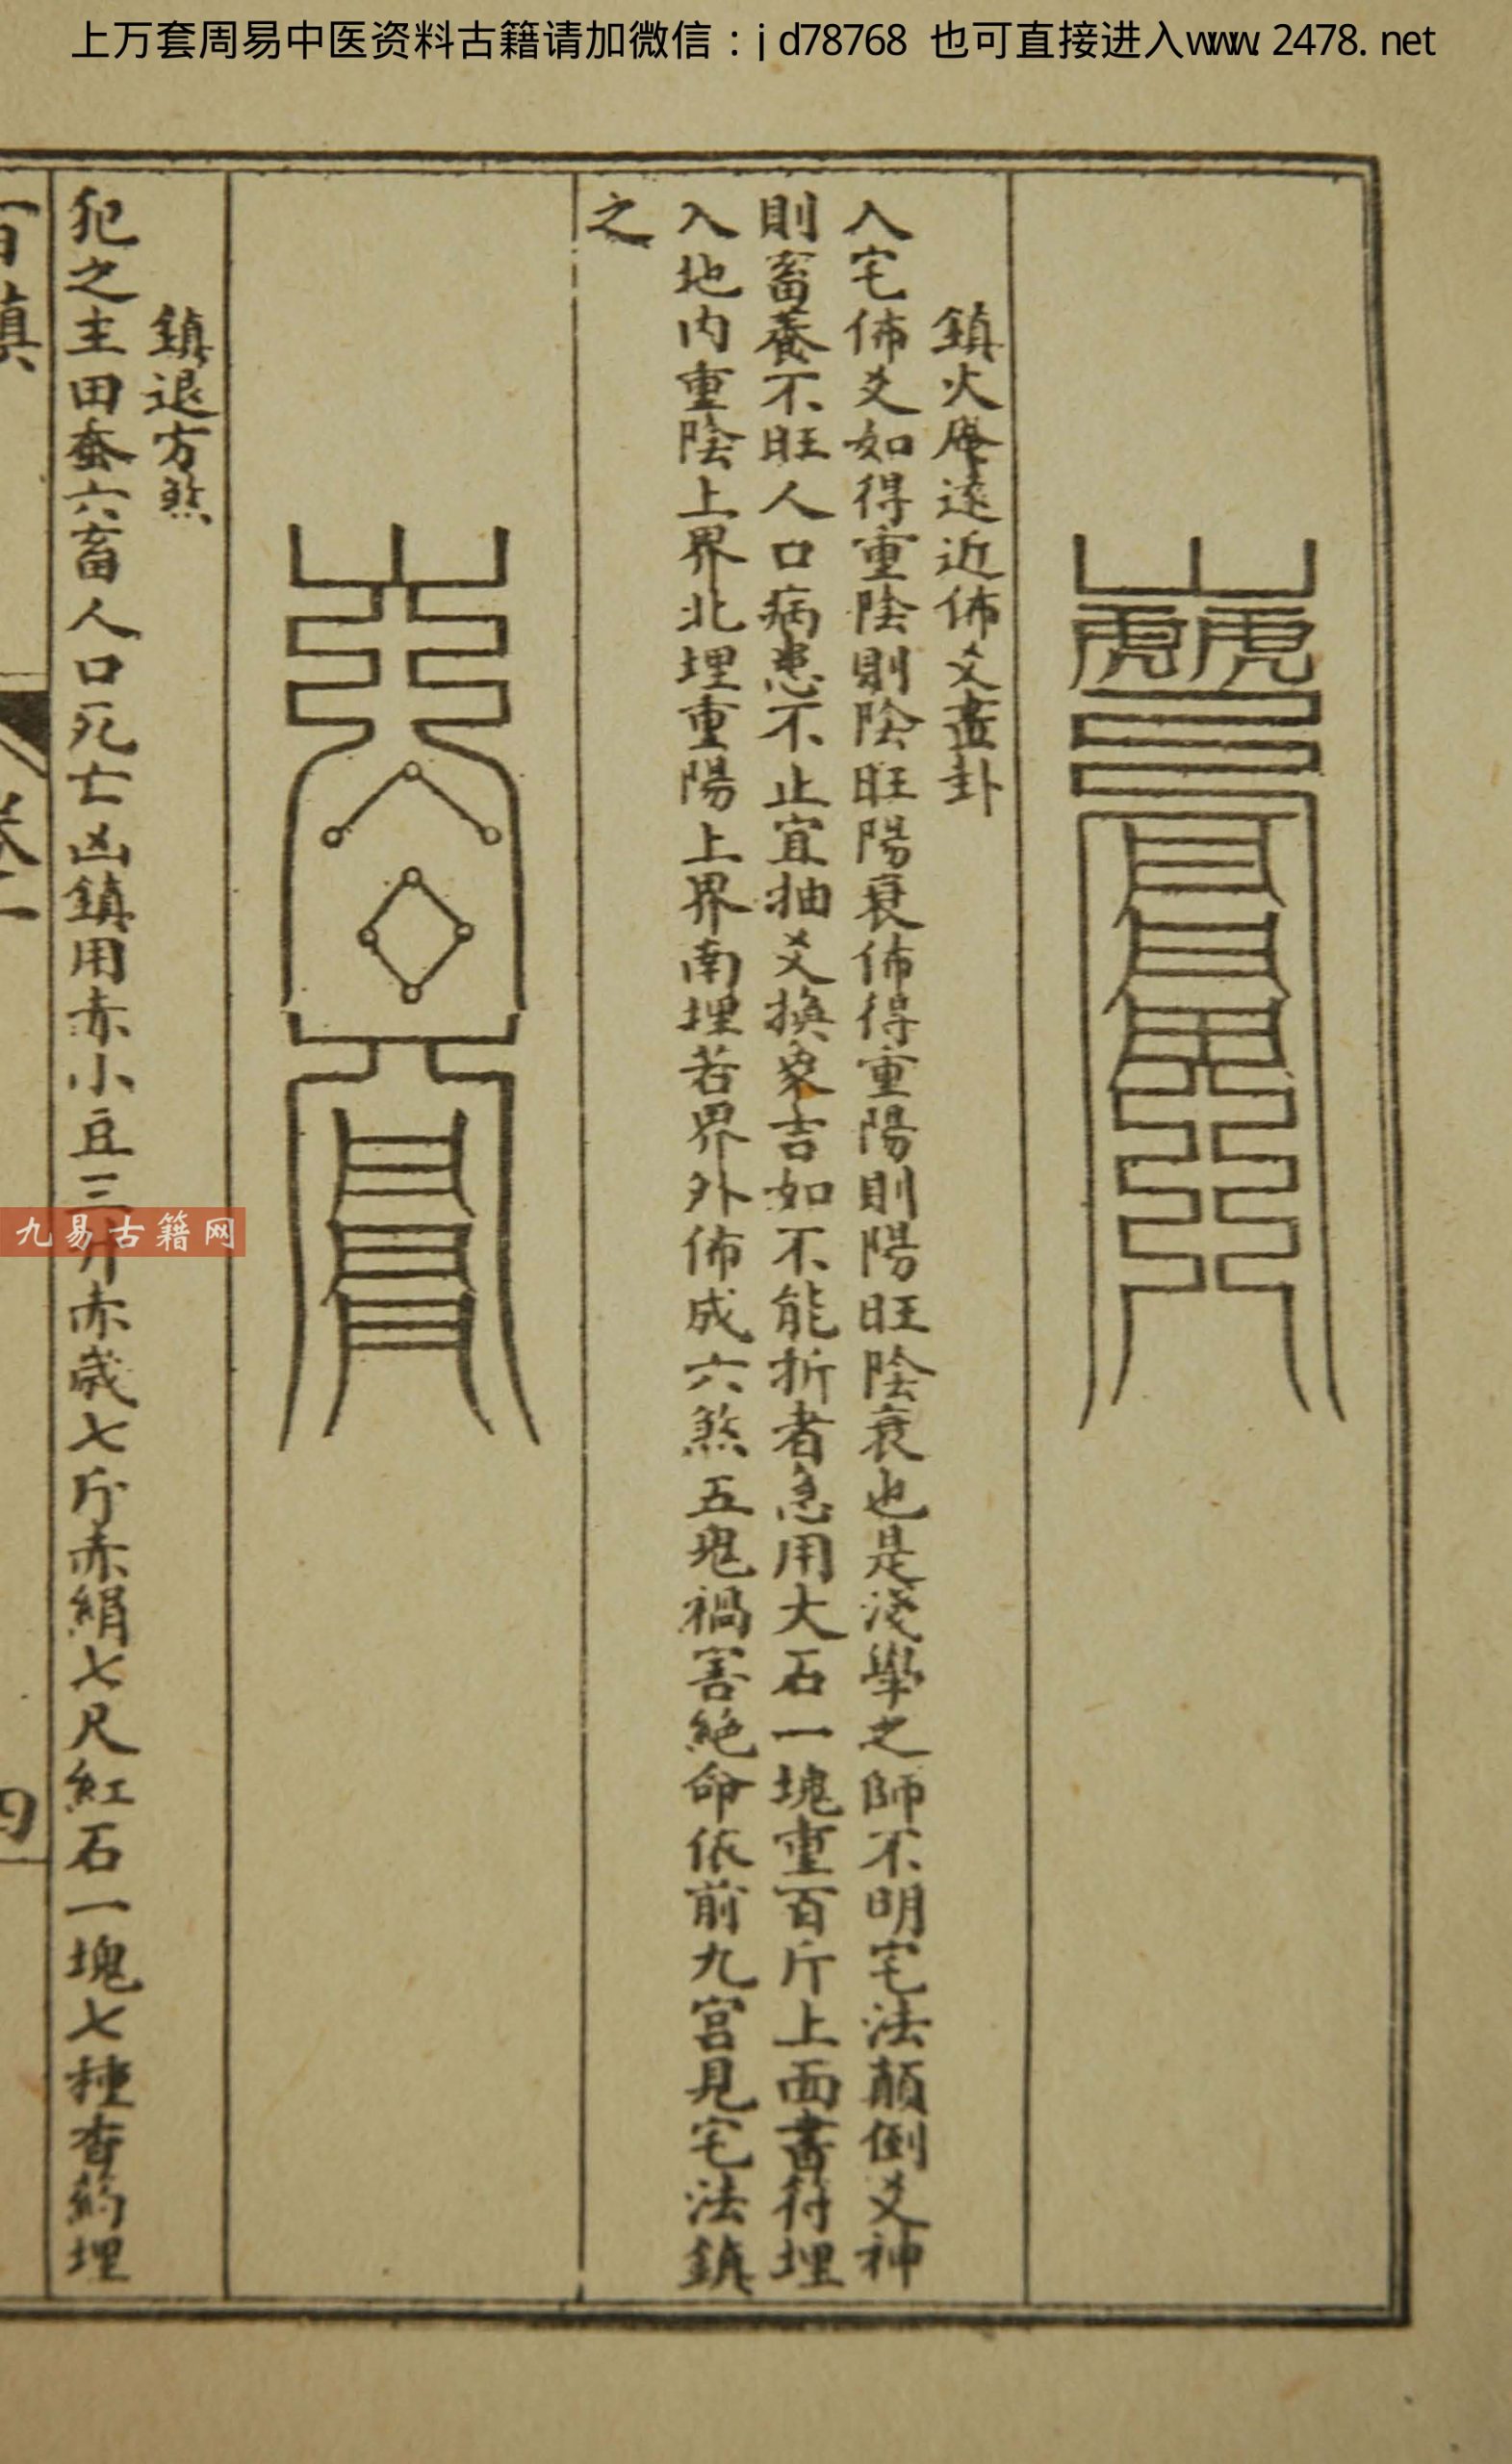 上万套周易中医资料古籍请加微信：jd78768 也可直接进入www.2478.net
鎮火層遠近佈爻畫卦
入宅佈爻如得重陰則陰旺陽衰佈得重陽則陽旺陰衰也是淺學之師不明宅法顛倒爻神
則畜養不旺人口病患不止宜抽爻換象吉如不能折者急用大石一塊重百斤上面書符埋
入地内重陰上界北埋重陽上界南埋若界外佈成六煞五鬼禍害絶命依前九宮見宅法鎮
之
鎮退方煞
犯之主田蚕六畜人口死亡凶鎮用赤小豆三升赤歲七斤赤絹七尺紅石一塊七種香葯埋
九易古籍网